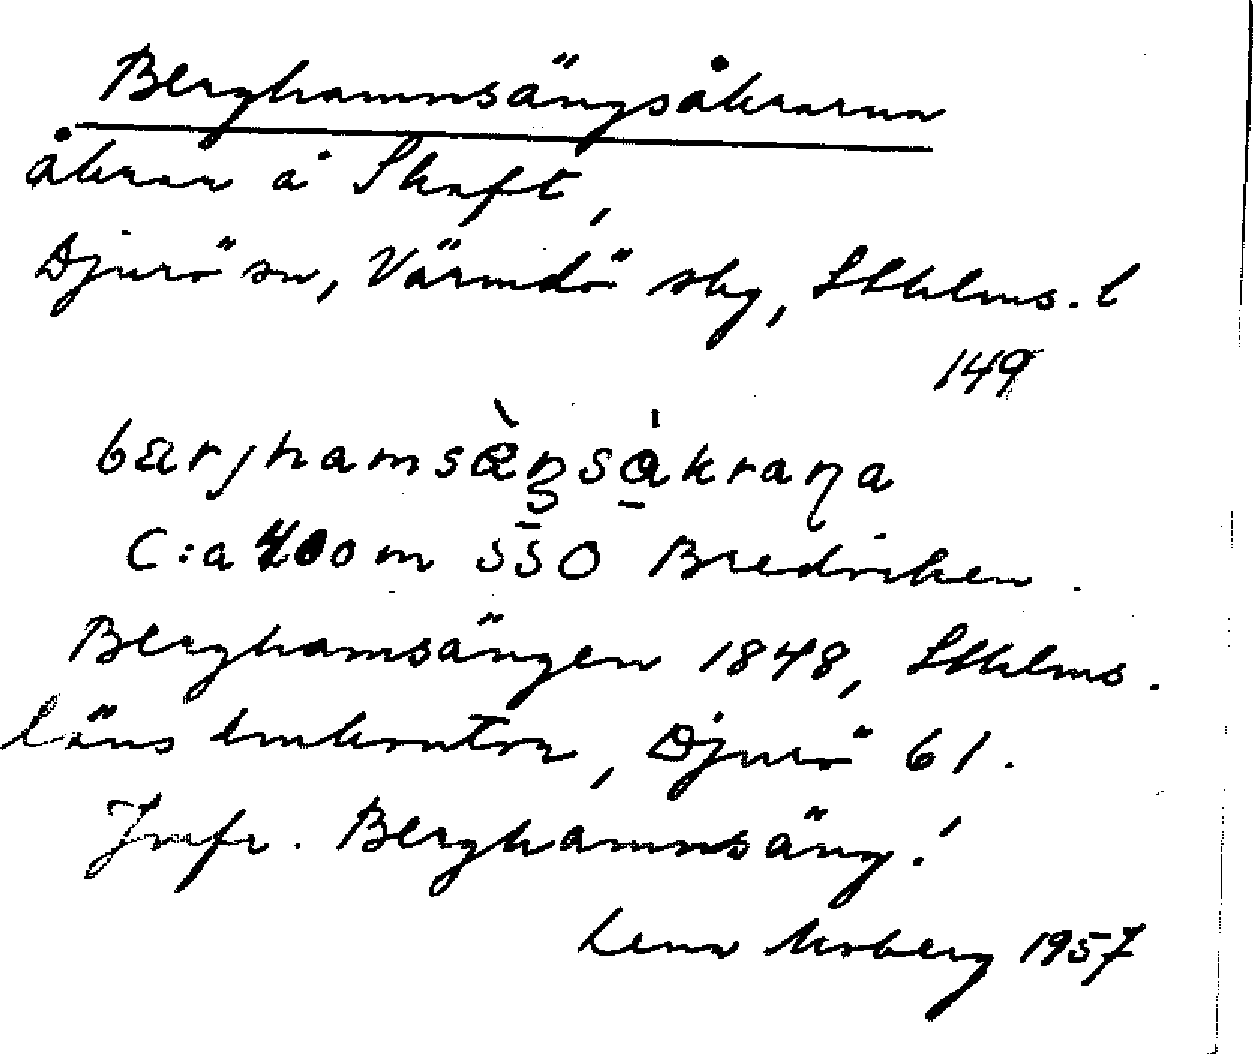 Berghamnsängsåkrarna
åkrar å Skaft,
Djurö sn, Värmdö skg, Sthlms. l
149
bærjhamsæ̀ŋsåkraɳa
C:a 400 m SSO Bredviken.
Berghamsängen 1848, Sthlms.
läns lmkontor, Djurö 61.
Jmfr. Berghamnsäng!
Lena Moberg 1957